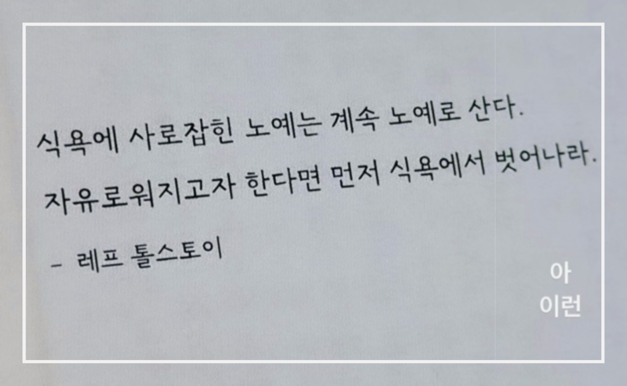 식욕에 사로잡힌 노예는 계속 노예로 산다.
자유로워지고자 한다면 먼저 식욕에서 벗어나라.
- 레프 톨스토이
아
이런